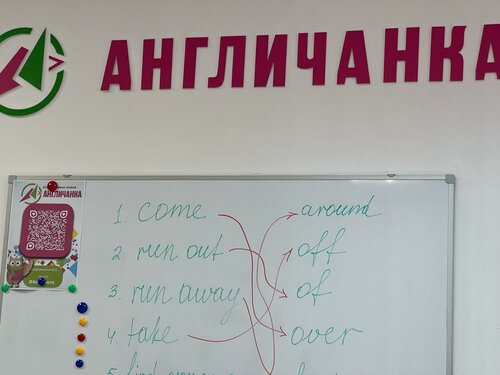 АНГЛИЧАНКА
АНГЛИЧАНКА
1. come around
2. run out off
3. run away of
4. take over
5. find